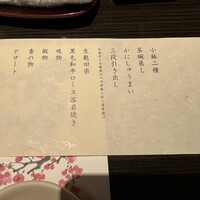 小鉢二種
茶碗蒸し
かにしゅうまい
三段引き出し
生麩田楽
黒毛和牛ロース溶岩焼き
吸物
御飯
香の物
デザート